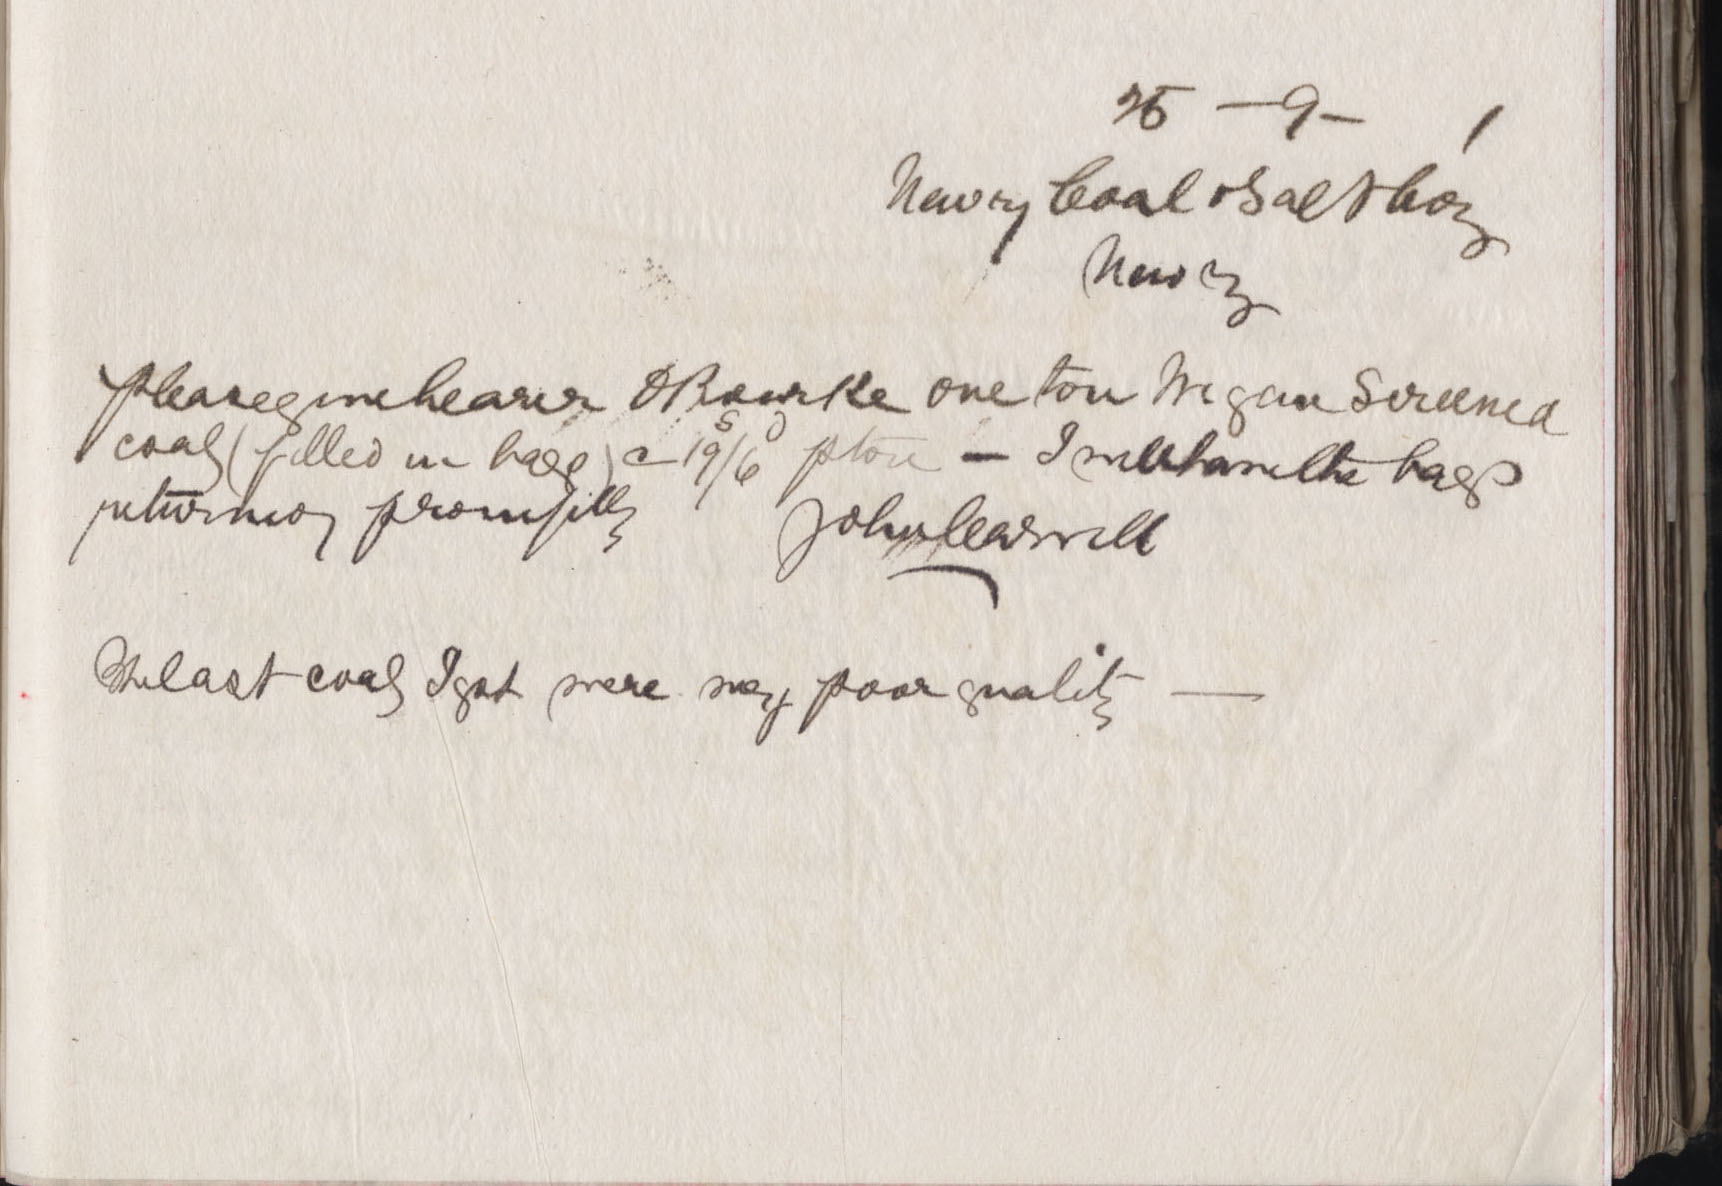 25 - 9 - 1
Newry Coal & Salt Coy
Newry
Please give bearer O Rourke one ton Wigan Screened
coals (filled in bags) @ 19s/6d p ton — I will have the bags
returned promptly John
The last coals I got were very poor quality —